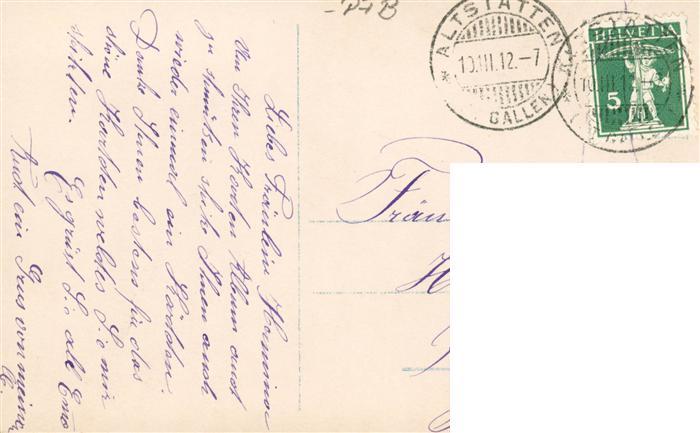 - P4B
ALTSTÄTTEN
10.III.12.-7
(ST. GALLEN)
HELVETIA
5
Liebes Fräulein Hermina
Um Ihren Karten Album auch
zu schmücken schike Ihnen auch
wieder einmal ein Kärtchen.
Danke Ihnen bestens für das
schöne Kärtchen welches Sie mir
schikten.
Es grüsst Sie all Emo
Auch ein Gruss von meiner
Frän